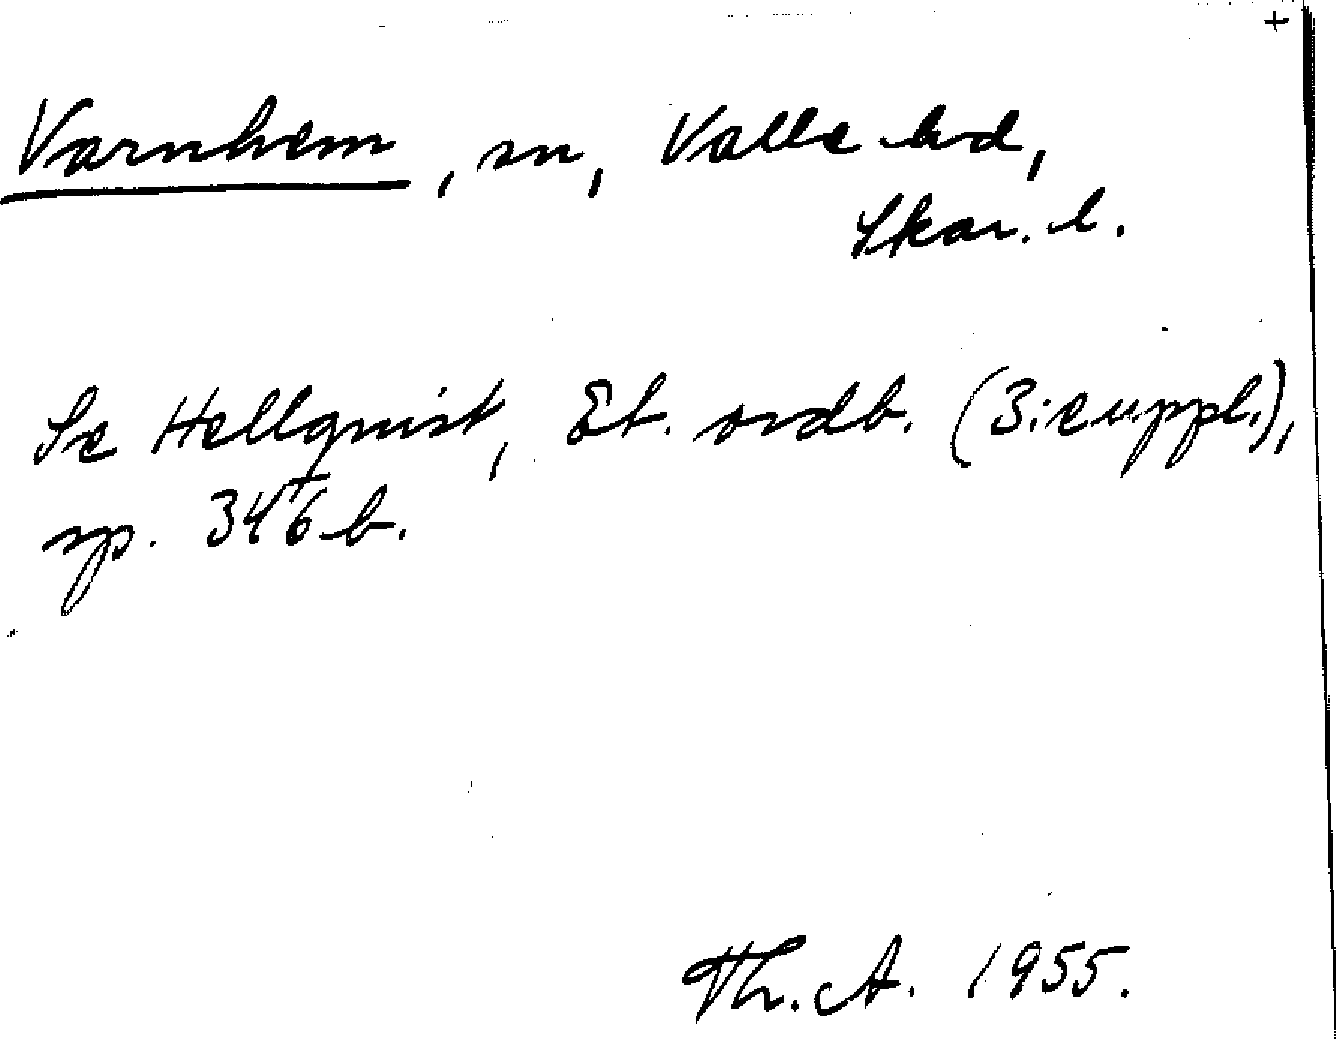 +
Varnhem, sn, Valle hd,
Skar. l.
Se Hellquist, Et. ordb. (3:e uppl.),
sp. 346 b.
Th. A. 1955.